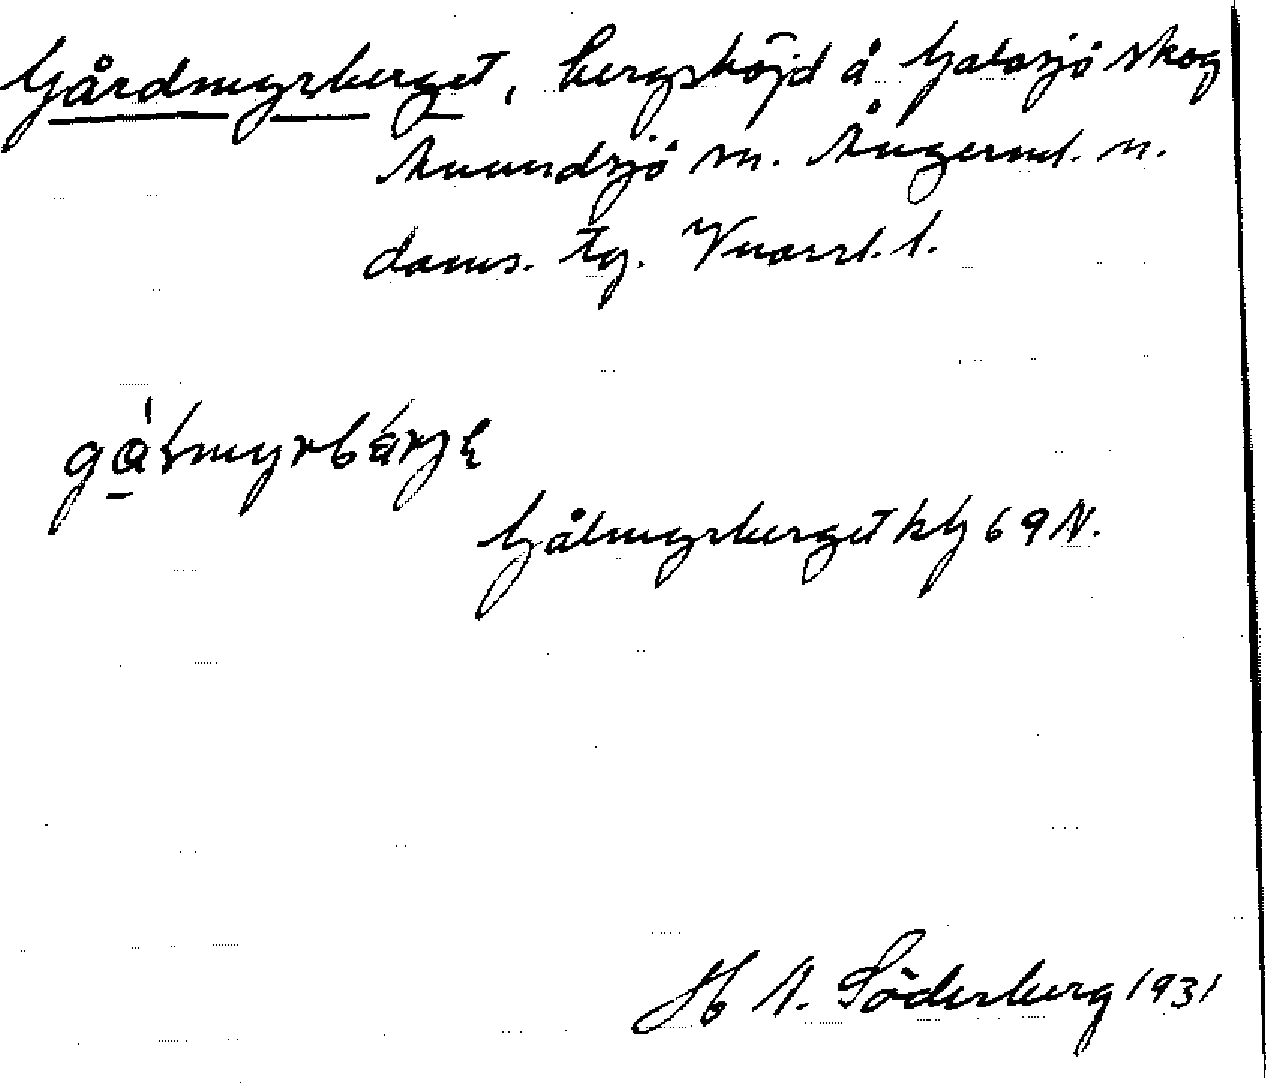 Gårdmyrberget, bergshöjd å Galasjö skog
Anundsjö sn. Ångerml. n.
doms. tg. Vnorrl. l.
Gålmyrberget kbl 69 N.
H A. Söderberg 1931